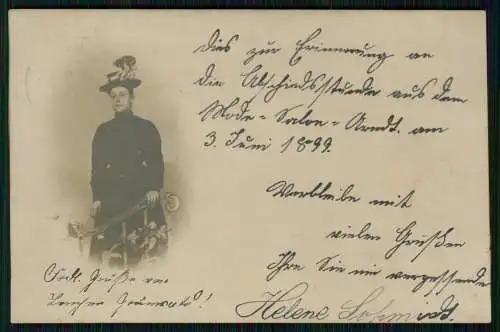 Dies zur Erinnerung an
die Abschiedsstunde aus dem
Mode-Salon-Arndt. am
3. Juni 1899.
Verbleibe mit
vielen Grüßen
Ihre Sie nie vergessende
Helene
Grüße von